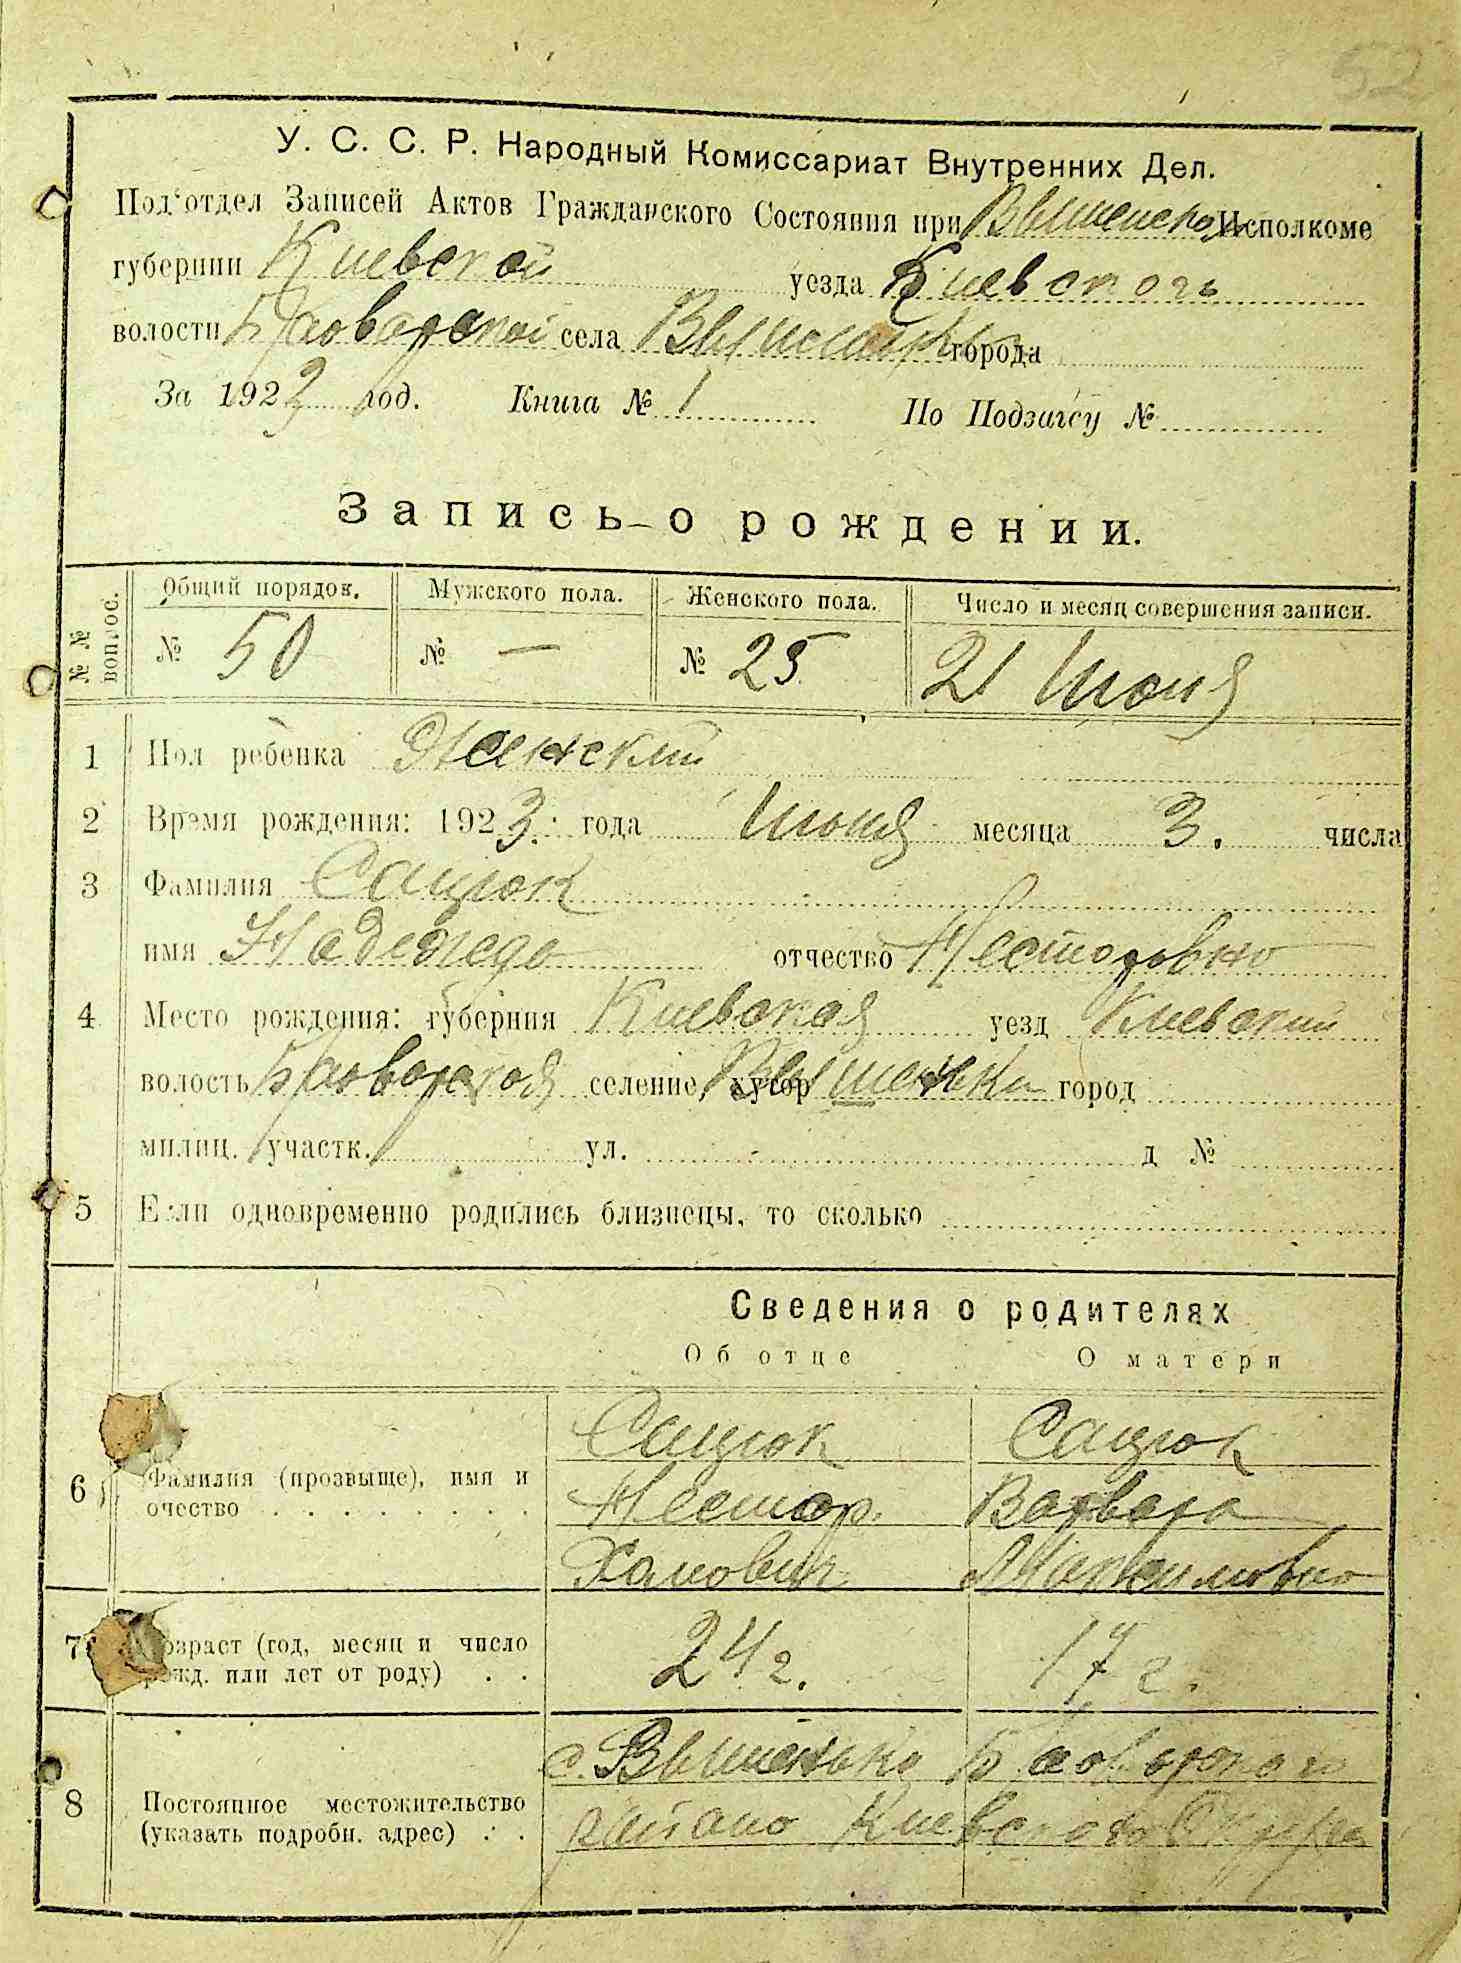 52
У. С. С. Р. Народный Комиссариат Внутренних Дел.
Под'отдел Записей Актов Гражданского Состояния при Вышенском Исполкоме
губернии Киевской уезда Киевского
волости Броварской села Вышеньки города
За 1923 год. Книга № 1 По Подзагсу №
Запись о рождении.
№ № вопрос. Общий порядок. Мужского пола. Женского пола. Число и месяц совершения записи.
№ 50 № — № 25 21 Июня
1 Пол ребенка Женский
2 Время рождения: 1923. года Июня месяца 3. числа
3 Фамилия Сацюк
имя Надежда отчество Несторовна
4 Место рождения: губерния Киевская уезд Киевский
волость Броварская селение, хутор Вышеньки город
милиц. участк. ул. д №
5 Если одновременно родились близнецы, то сколько
Сведения о родителях
Об отце О матери
Сацюк Сацюк
6 Фамилия (прозвыще), имя и Нестор Варвара
очество
Максимовна
7 Возраст (год, месяц и число 24 г. 17 г.
рожд. или лет от роду)
с. Вышеньки Броварского
8 Постоянное местожительство
(указать подробн. адрес) района Киевской Округи